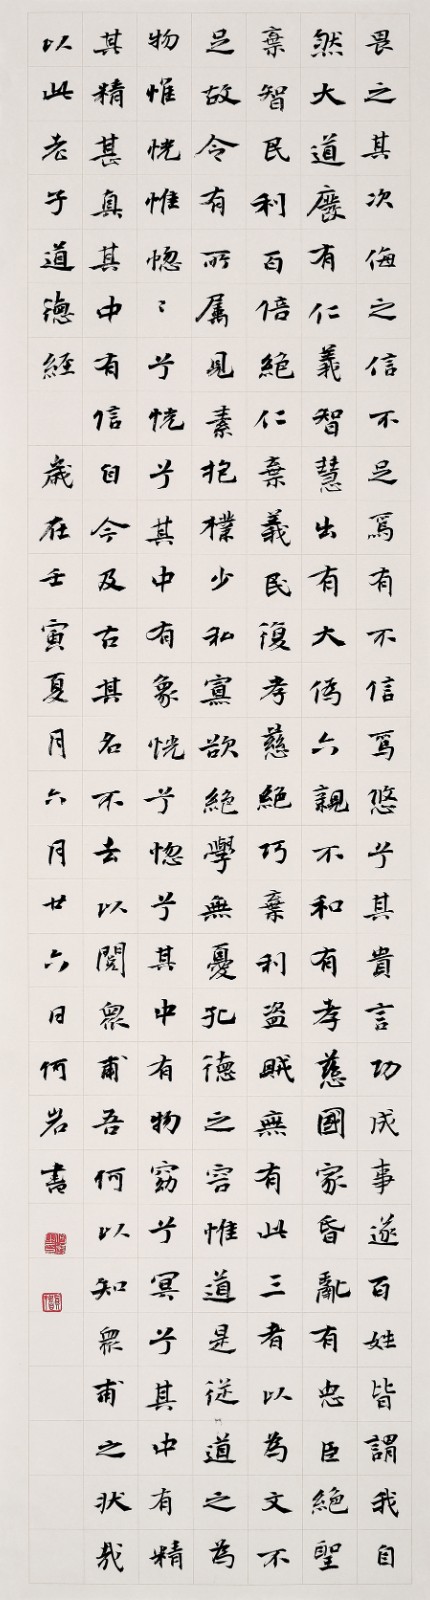 畏之其次侮之信不足焉有不信焉悠兮其貴言功成事遂百姓皆謂我自
然大道廢有仁義智慧出有大偽六親不和有孝慈國家昏亂有忠臣絕聖
棄智民利百倍絕仁棄義民復孝慈絕巧棄利盜賊無有此三者以為文不
足故令有所属見素抱樸少私寡欲絕學無憂孔德之容惟道是從道之為
物惟恍惟惚〻兮恍兮其中有象恍兮惚兮其中有物窈兮冥兮其中有精
其精甚真其中有信自今及古其名不去以閱衆甫吾何以知衆甫之狀哉
以此老子道德經 歲在壬寅夏月六月廿六日何岩書